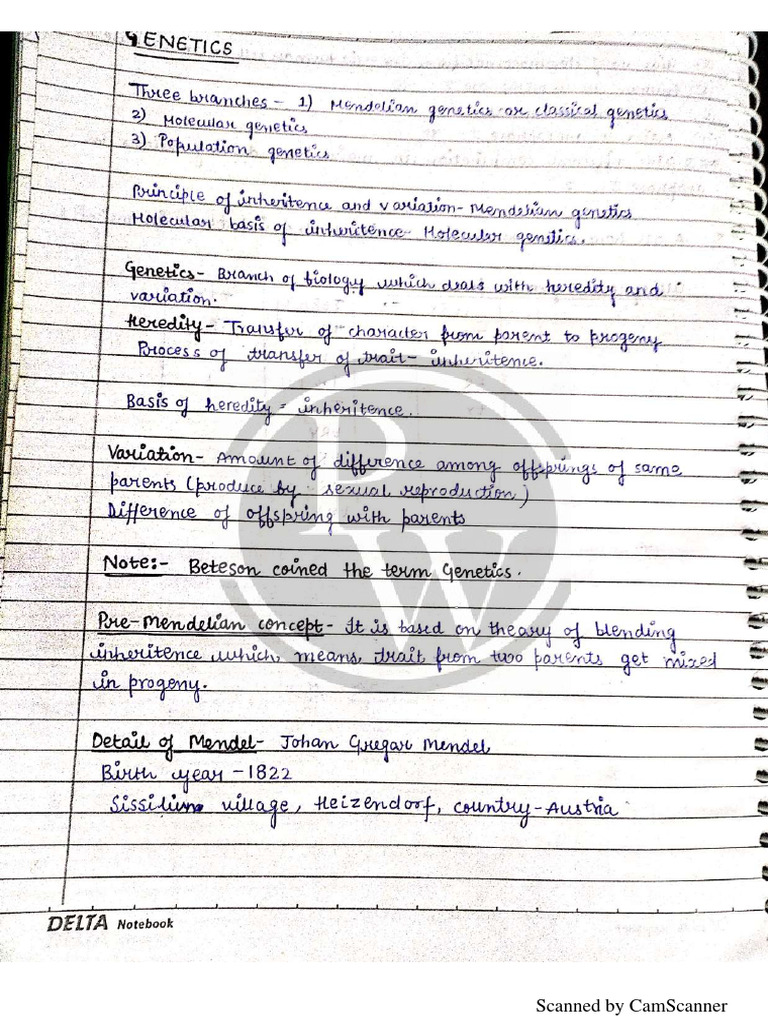 GENETICS
Three branches - 1) Mendelian genetics or classical genetics
2) Molecular genetics
3) Population genetics
Principle of inheritence and variation - Mendelian genetics
Molecular basis of inheritence - Molecular genetics.
Genetics - Branch of biology which deals with heredity and
variation.
Heredity - Transfer of character from parent to progeny
Process of transfer of trait - inheritence.
Basis of heredity = inheritence.
Variation - Amount of difference among offsprings of same
parents (produce by sexual reproduction)
Difference of offspring with parents
Note:- Beteson coined the term Genetics.
Pre-Mendelian concept - It is based on theory of blending
inheritence which means trait from two parents get mixed
in progeny.
Detail of Mendel - Johan Gregar Mendel
Birth year - 1822
village, Heizendorf, country - Austria
PW
DELTA Notebook
Scanned by CamScanner